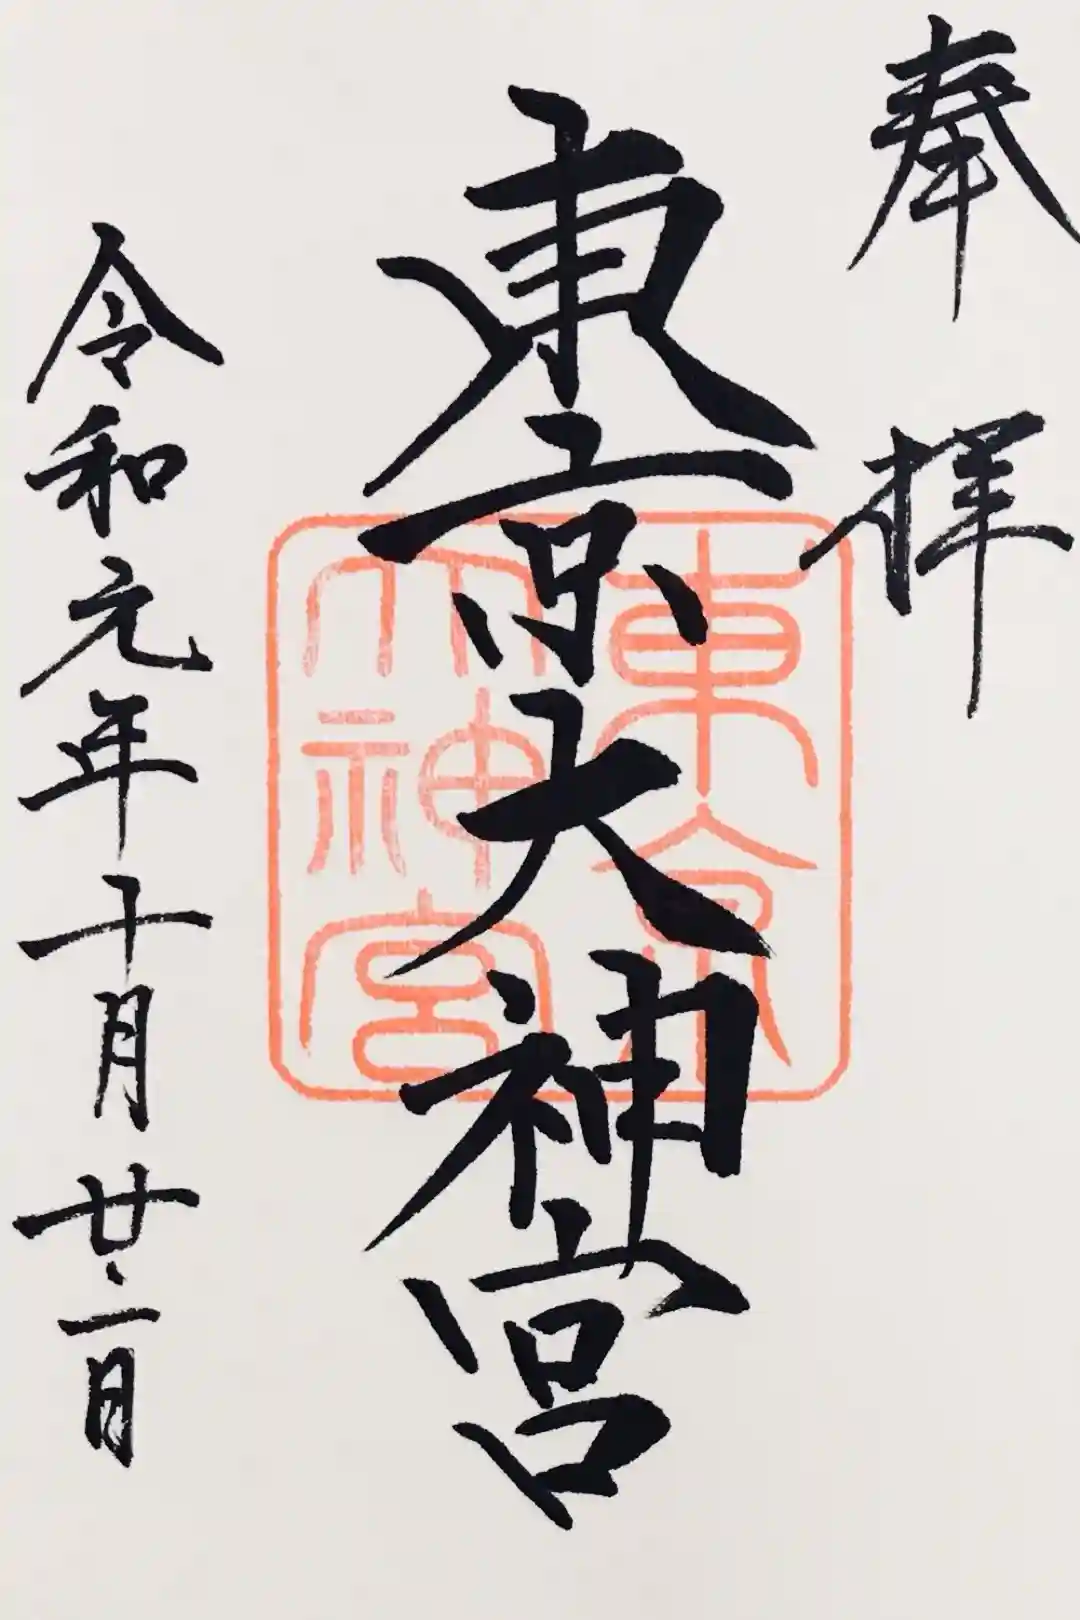 奉拝
東京大神宮
東京大神宮
令和元年十月廿二日